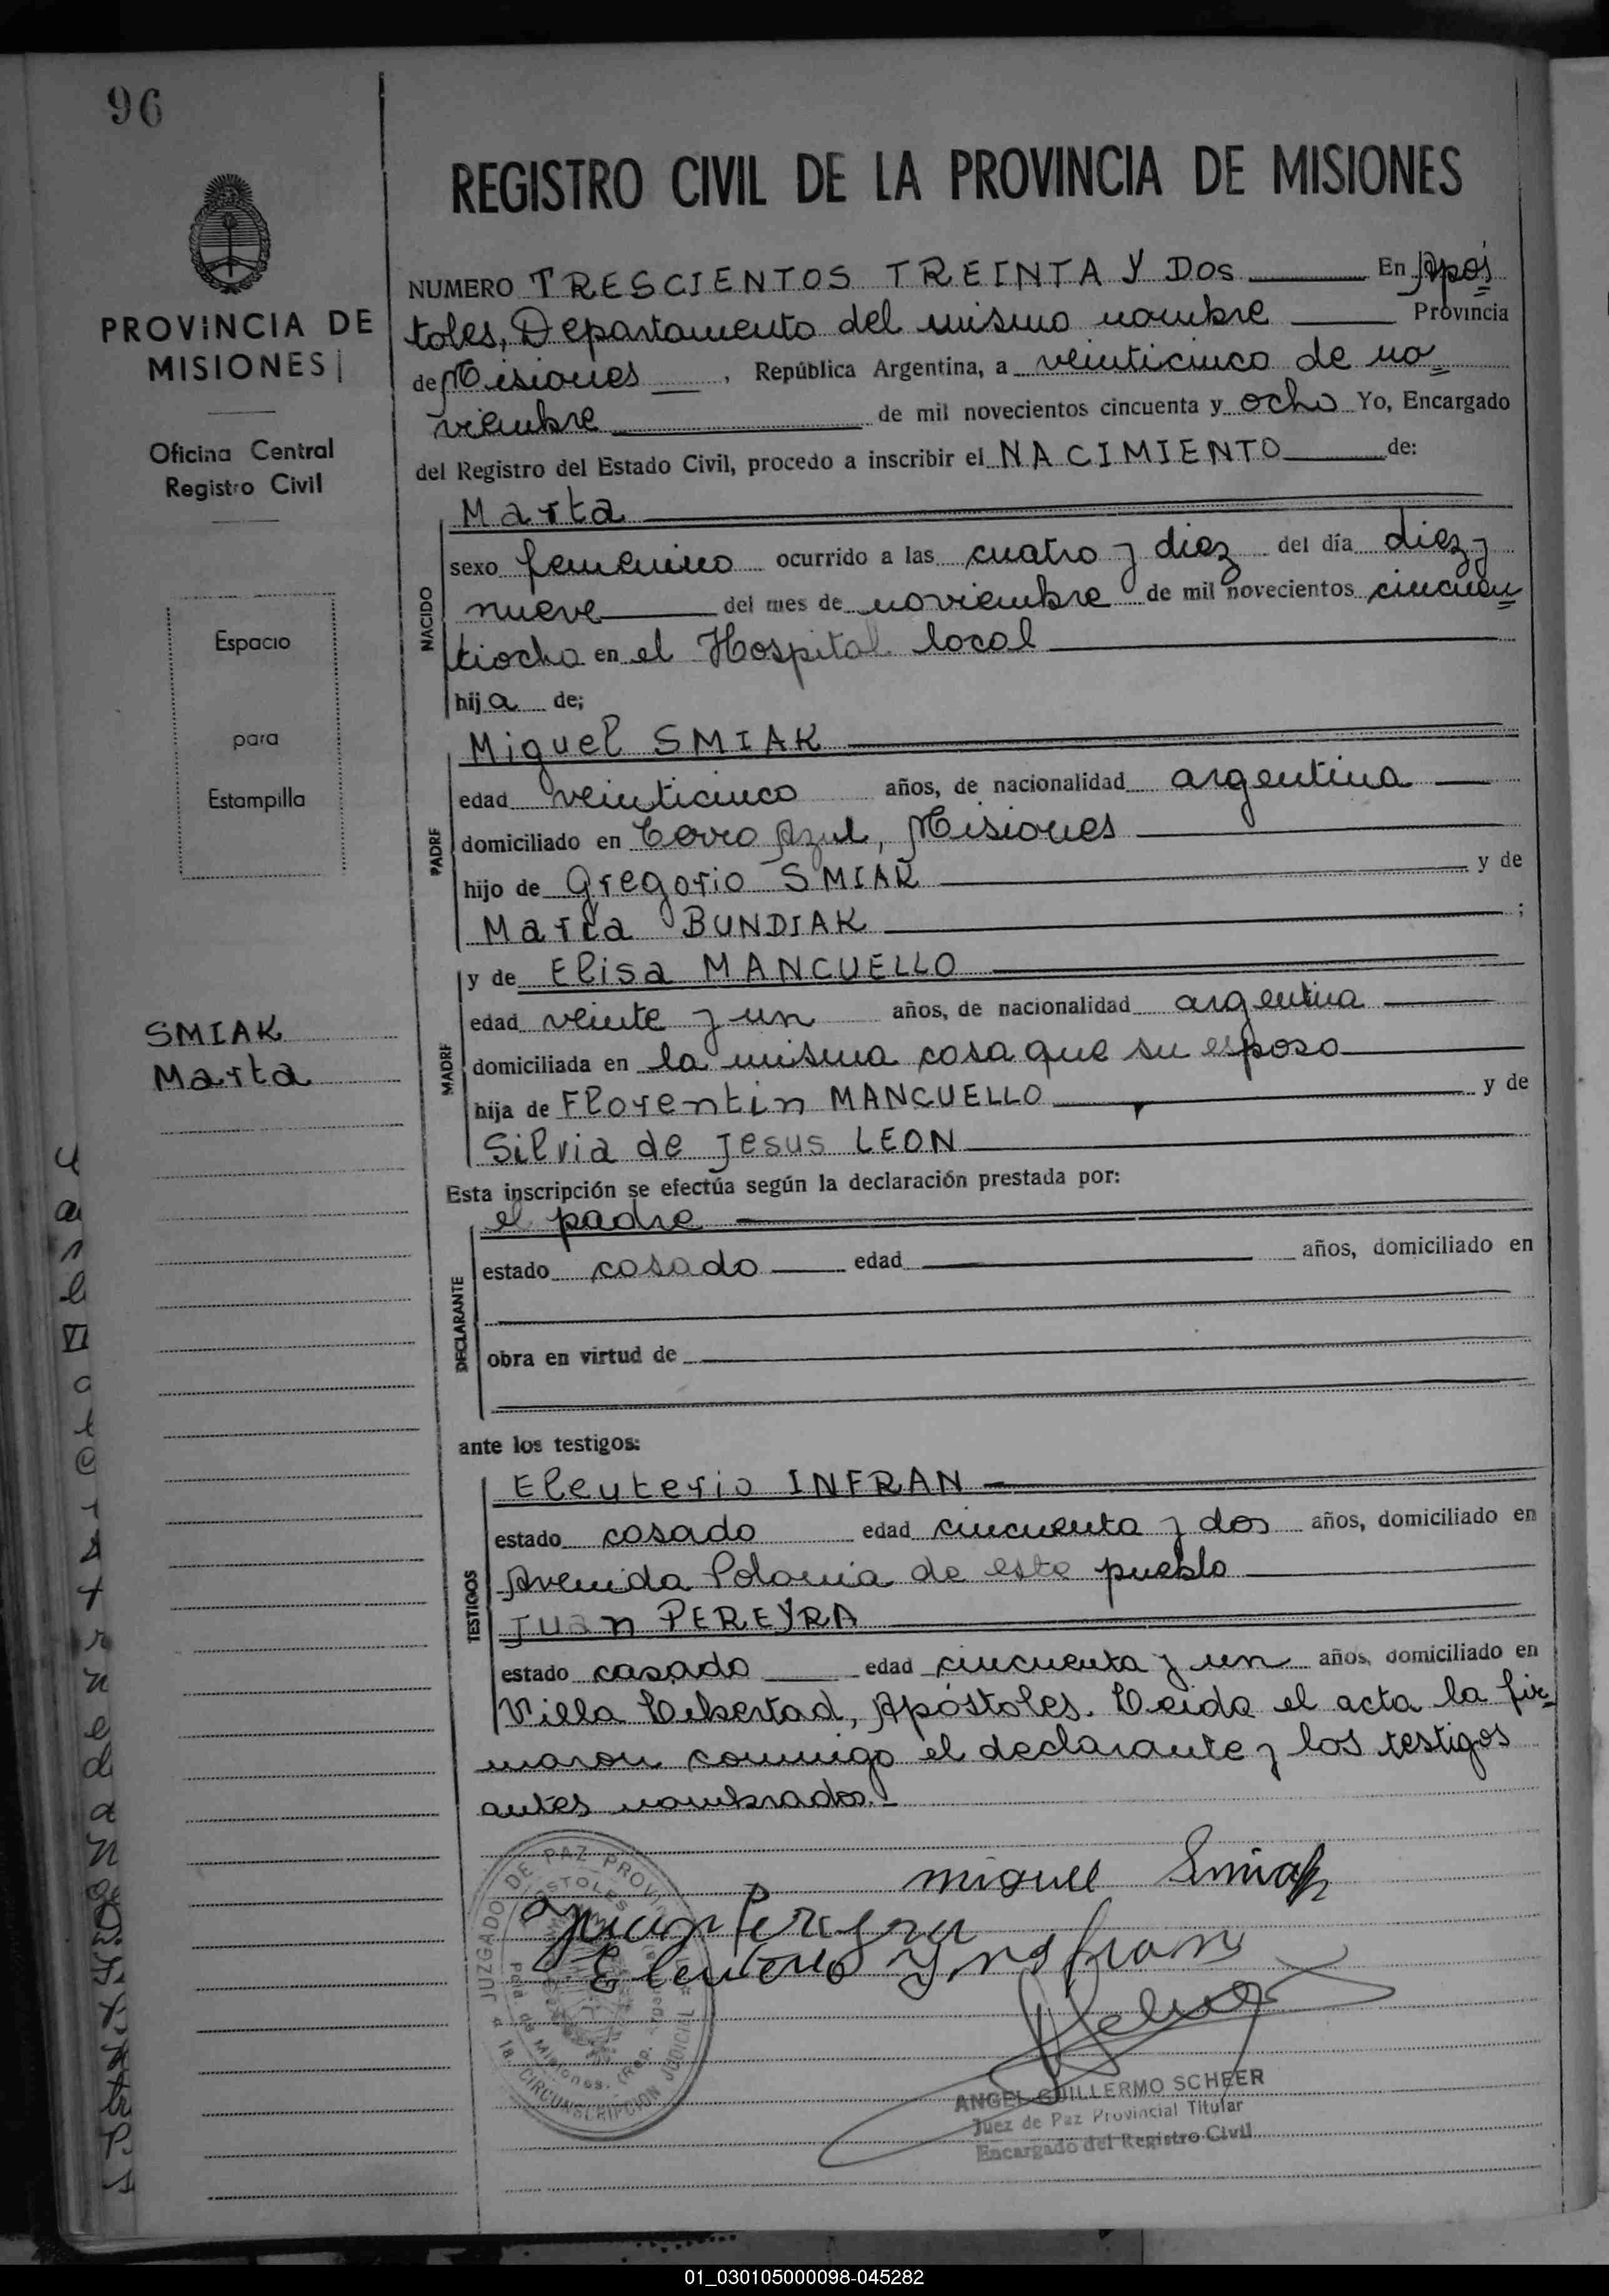 96
REGISTRO CIVIL DE LA PROVINCIA DE MISIONES
PROVINCIA DE
MISIONES
Oficina Central
Registro Civil
Espacio
para
Estampilla
SMIAK
Marta
NUMERO TRESCIENTOS TREINTA Y DOS En Após
toles, Departamento del mismo nombre Provincia
de Misiones , República Argentina, a veinticinco de no
viembre de mil novecientos cincuenta y ocho Yo, Encargado
del Registro del Estado Civil, procedo a inscribir el NACIMIENTO de:
NACIDO
Marta
sexo femenino ocurrido a las cuatro y diez del día diez y
nueve del mes de noviembre de mil novecientos cincuen
tiocho en el Hospital local
hija de;
PADRE
Miguel SMIAK
edad veinticinco años, de nacionalidad argentina
domiciliado en Cerro Azul, Misiones
hijo de Gregorio SMIAK y de
María BUNDIAK ;
MADRE
y de Elisa MANCUELLO
edad veinte y un años, de nacionalidad argentina
domiciliada en la misma casa que su esposo
hija de Florentin MANCUELLO y de
Silvia de Jesus LEON
Esta inscripción se efectúa según la declaración prestada por:
DECLARANTE
el padre
estado casado edad años, domiciliado en
obra en virtud de
ante los testigos:
TESTIGOS
Eleuterio INFRAN
estado casado edad cincuenta y dos años, domiciliado en
Avenida Polonia de este pueblo
Juan PEREYRA
estado casado edad cincuenta y un años, domiciliado en
Villa Libertad, Apóstoles. Leida el acta la fir=
maron conmigo el declarante y los testigos
antes nombrados.-
miguel Smiak
Juan Pereyra
Eleuterio Ynsfran
JUZGADO DE PAZ PROVIN
APOSTOLES
1a. CIRCUNSCRIPCION JUDICIAL
de Misiones. (Rep.
ANGEL GUILLERMO SCHEER
Juez de Paz Provincial Titular
Encargado del Registro Civil
01_030105000098-045282